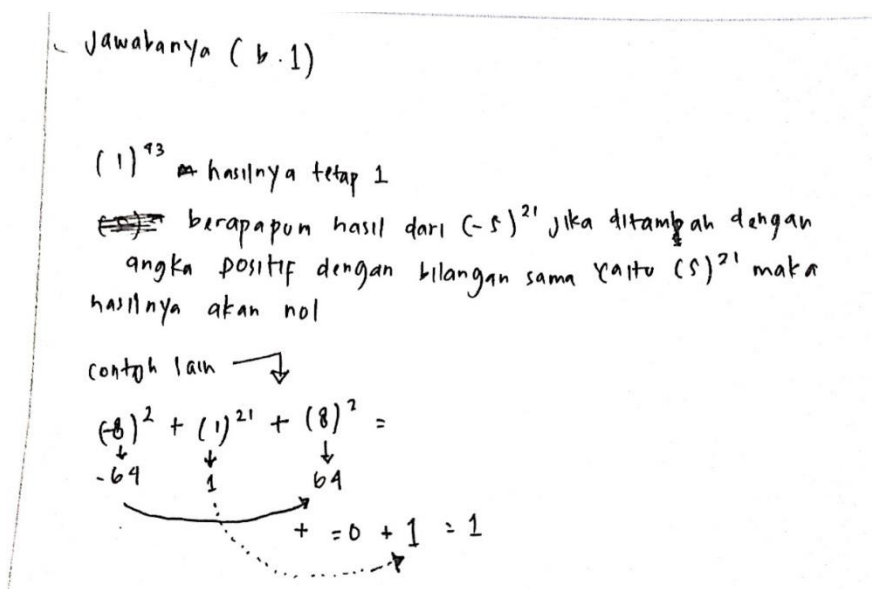 Jawabanya (b.1)
(1)⁹³ hasilnya tetap 1
berapapun hasil dari (-5)²¹ jika ditambah dengan
angka positif dengan bilangan sama yaitu (5)²¹ maka
hasilnya akan nol
contoh lain
(-8)² + (1)²¹ + (8)² =
-64 1 64
+ = 0 + 1 = 1